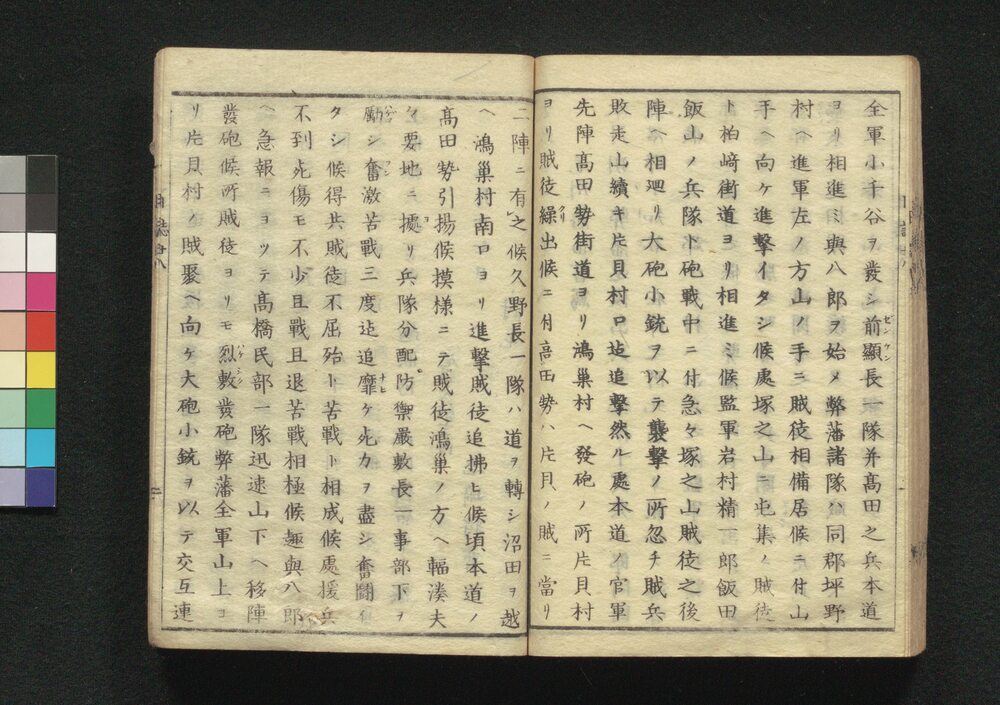 全軍小千谷ヲ發シ前顯長一隊并髙田之兵本道
ヨリ相進ミ與八郎ヲ始メ弊藩諸隊ハ同郡坪野
村ヘ進軍左ノ方山ノ手ニ賊徒相備居候ニ付山
手ヘ向ケ進擊イタシ候處塚之山ニ屯集ノ賊徒
ト柏﨑街道ヨリ相進ミ候監軍岩村精一郎飯田
飯山ノ兵隊ト砲戰中ニ付急々塚之山賊徒之後
陣ヘ相廻リ大砲小銃ヲ以テ襲擊ノ所忽チ賊兵
敗走山續キ片貝村口迠追擊然ル處本道ノ官軍
先陣髙田勢街道ヨリ鴻巢村ヘ發砲ノ所片貝村
ヨリ賊徒繰出候ニ付髙田勢ハ片貝ノ賊ニ當リ
二陣ニ有之候久野長一隊ハ道ヲ轉シ沼田ヲ越
ヘ鴻巢村南口ヨリ進擊賊徒追拂ヒ候頃本道ノ
髙田勢引揚候摸様ニテ賊徒鴻巢ノ方ヘ輻湊夫
々要地ニ據リ兵隊分配防禦嚴敷長一事部下ヲ
勵シ奮激苦戰三度迠追靡ケ死力ヲ盡シ奮鬪イ
タシ候得共賊徒不屈殆ト苦戰ト相成候處援兵
不到死傷モ不少且戰且退苦戰相極候趣與八郎
ヘ急報ニヨツテ髙橋民部一隊迅速山下ヘ移陣
發砲候所賊徒ヨリモ烈敷發砲弊藩全軍山上ヨ
リ片貝村ノ賊聚ヘ向ケ大砲小銃ヲ以テ交互連